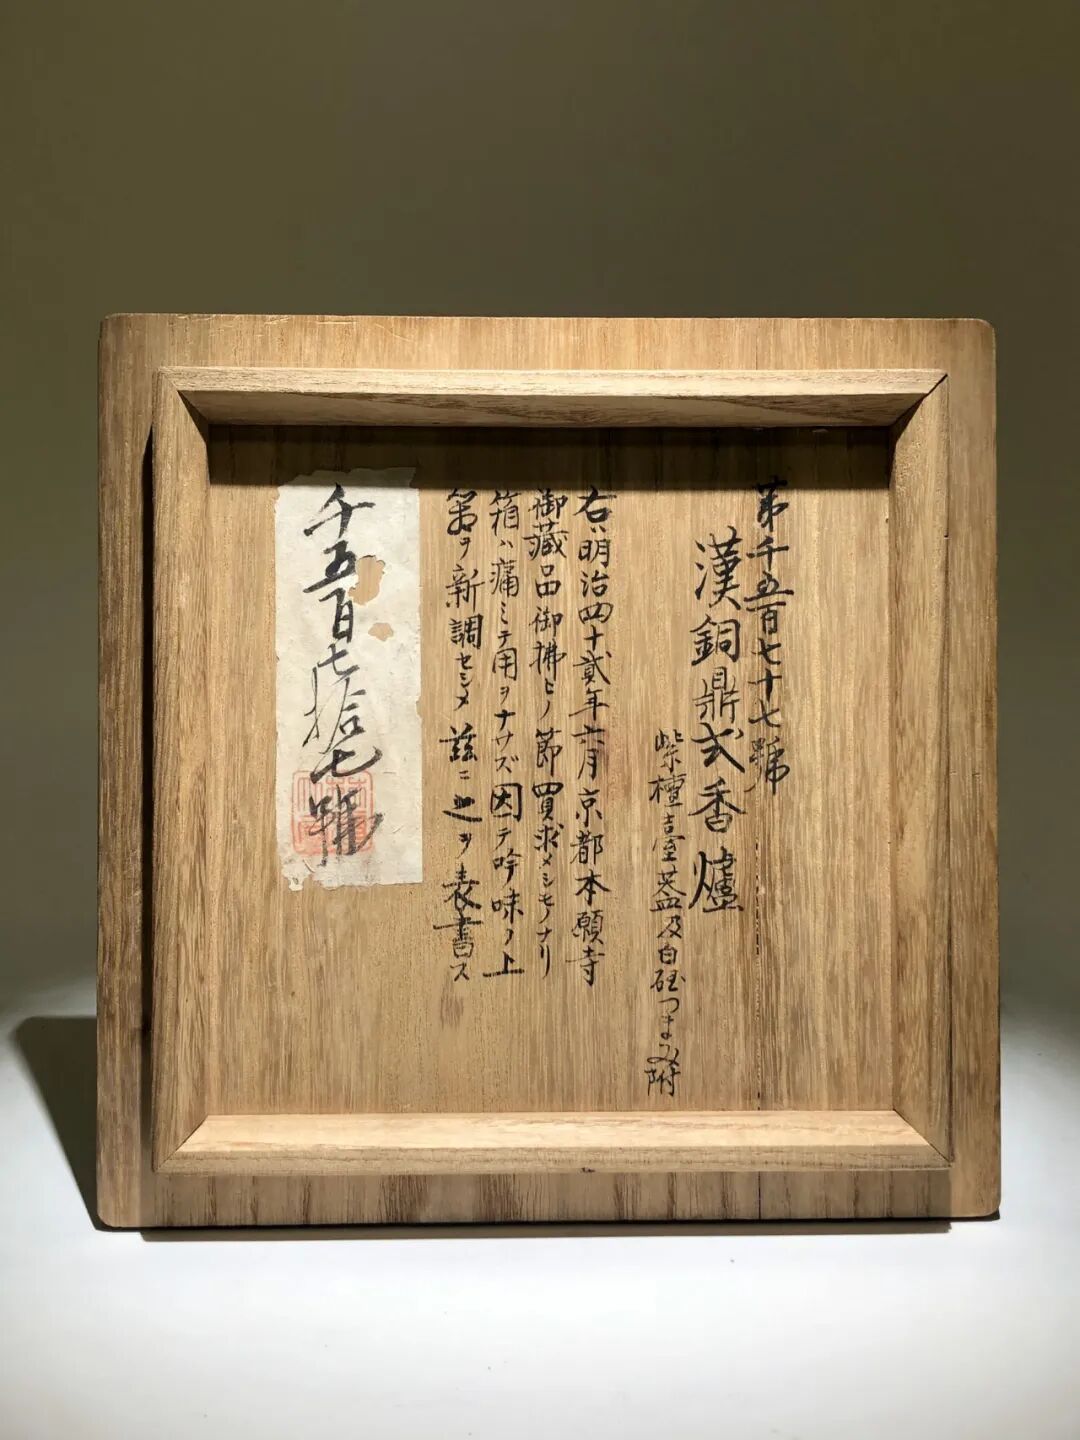 第千五百七十七號
漢銅鼎式香爐
紫檀臺蓋及白玉つまみ附
右ハ明治四十貳年六月京都本願寺
御藏品御拂ヒノ節買求メシモノナリ
箱ハ痛ミテ用ヲナサズ因テ吟味ノ上
第ヲ新調セシメ茲ニ之ヲ表書ス
千五百七拾七號